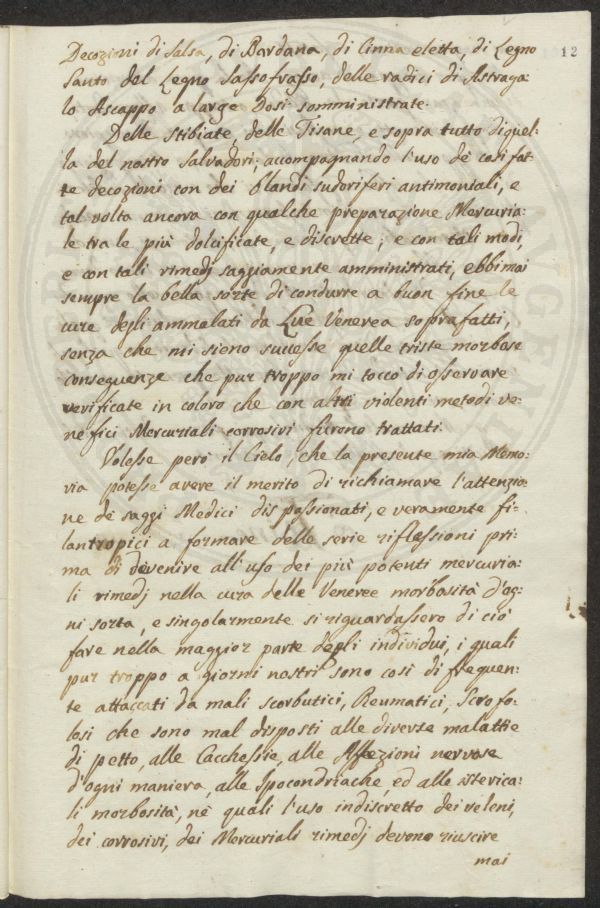 12
Decozioni di Salsa, di Bardana, di Cinna eletta, di Legno
Santo del Legno Sassofrasso, delle radici di Astraga:
lo Ascappo a large Dosi somministrate.
Delle Stibiate, delle Tisane, e sopra tutto di quel:
la del nostro Salvadori; accompagnando l'uso de così fat:
te decozioni con dei blandi sudoriferi antimoniali, e
tal volta ancora con qualche preparazione Mercuria:
le tra le più dolcificate, e discrette; e con tali modi,
e con tali rimedj saggiamente amministrati, ebbi mai
sempre la bella sorte di condurre a buon fine le
cure degli ammalati da Lue Venerea soprafatti,
senza che mi siono successe quelle triste morbose
conseguenze che pur troppo mi toccò di osservare
verificate in coloro che con altri violenti metodi ve:
nefici Mercuriali corrosivi furono trattati.
Volesse però il Cielo, che la presente mia Memo:
ria potesse avere il merito di richiamare l'attenzio:
ne de saggi Medici dispassionati, e veramente fi:
lantropici a formare delle serie riflessioni pri:
ma di devenire all'uso dei più potenti mercuria:
li rimedj nella cura delle Veneree morbosità d'og:
ni sorta, e singolarmente si riguardassero di ciò
fare nella maggior parte degli individui, i quali
pur troppo a giorni nostri sono così di frequen:
te attaccati da mali scorbutici, Reumatici, Scrofo:
losi che sono mal disposti alle diverse malattie
di petto, alle Cacchessie, alle Affezioni nervose
d'ogni maniera, alle Ipocondriache, ed alle isterica:
li morbosità, nè quali l'uso indiscretto dei veleni,
dei corrosivi, dei Mercuriali rimedj devono riuscire
mai